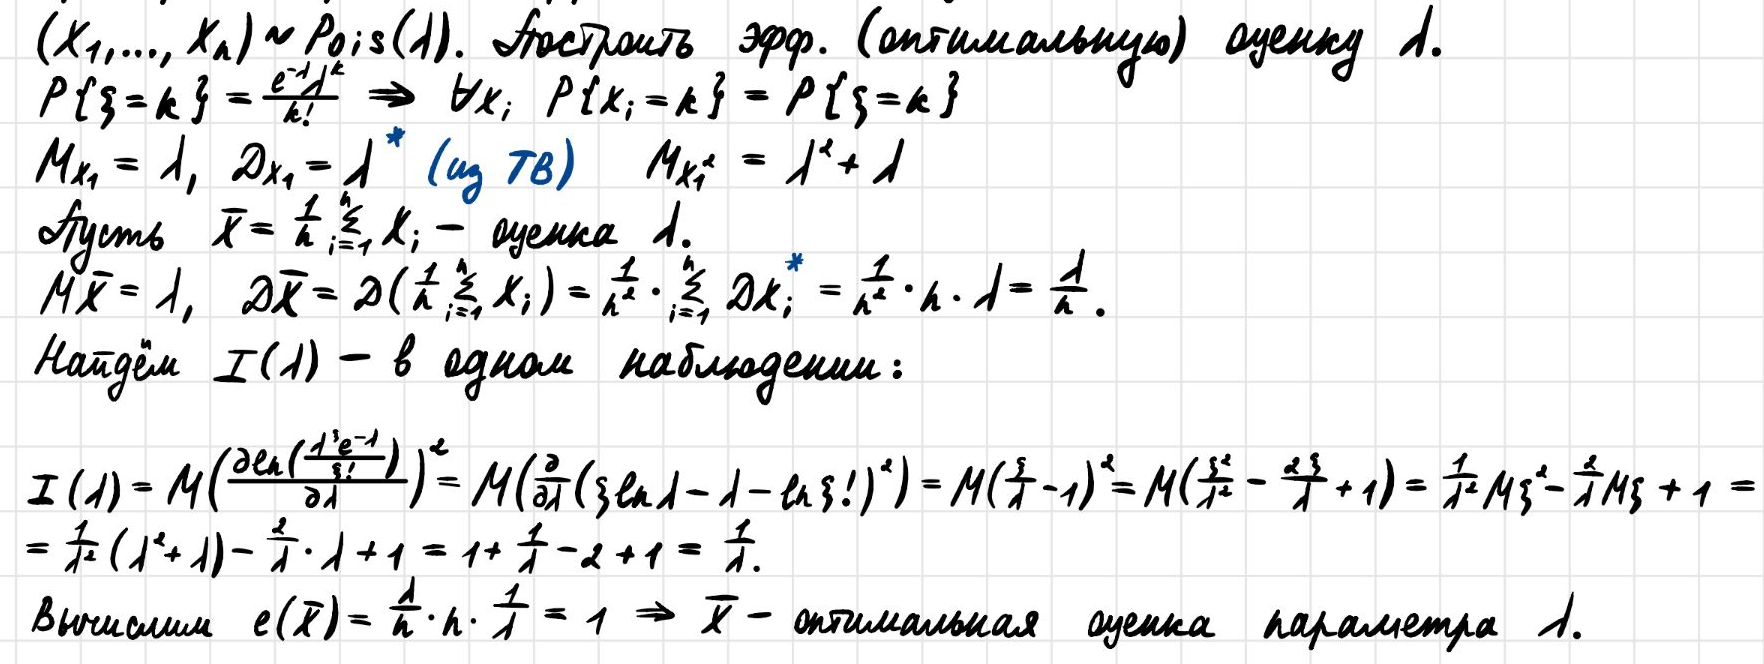 (X₁,..., Xₙ) ~ Pois(λ). Построить эфф. (оптимальную) оценку λ.
P{ξ=k} = e^{-λ}λ^k/k! ⇒ ∀x_i P{x_i=k} = P{ξ=k}
Mx₁ = λ, Dx₁ = λ* (из ТВ) Mx₁² = λ²+λ
Пусть X̄ = 1/n Σ_{i=1}^{n} X_i – оценка λ.
MX̄ = λ, DX̄ = D(1/n Σ_{i=1}^{n} X_i) = 1/n² · Σ_{i=1}^{n} Dx_i* = 1/n² · n · λ = λ/n.
Найдём I(λ) – в одном наблюдении:
I(λ) = M(∂ln(λ^ξ e^{-λ}/ξ!)/∂λ)² = M(∂/∂λ(ξ ln λ - λ - ln ξ!)²) = M(ξ/λ - 1)² = M(ξ²/λ² - 2ξ/λ + 1) = 1/λ² Mξ² - 2/λ Mξ + 1 =
= 1/λ² (λ²+λ) - 2/λ · λ + 1 = 1 + 1/λ - 2 + 1 = 1/λ.
Вычислим e(X̄) = λ/n · n · 1/λ = 1 ⇒ X̄ – оптимальная оценка параметра λ.